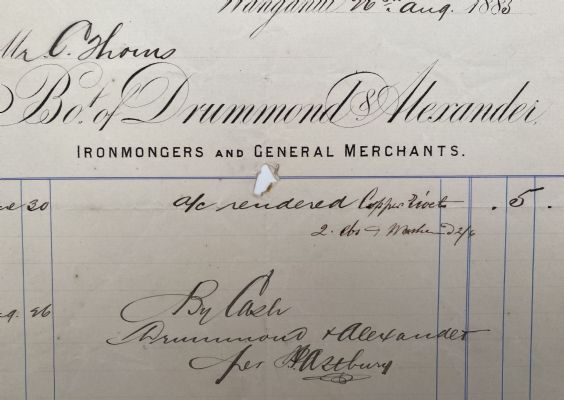 Wanganui 26th Aug. 1885
Mr. C. Thoms
Bot. of Drummond & Alexander,
IRONMONGERS AND GENERAL MERCHANTS.
30 a/c rendered Copper Rivets . 5 .
2 lbs & Washers 2/6
26
By Cash
Drummond & Alexander
per